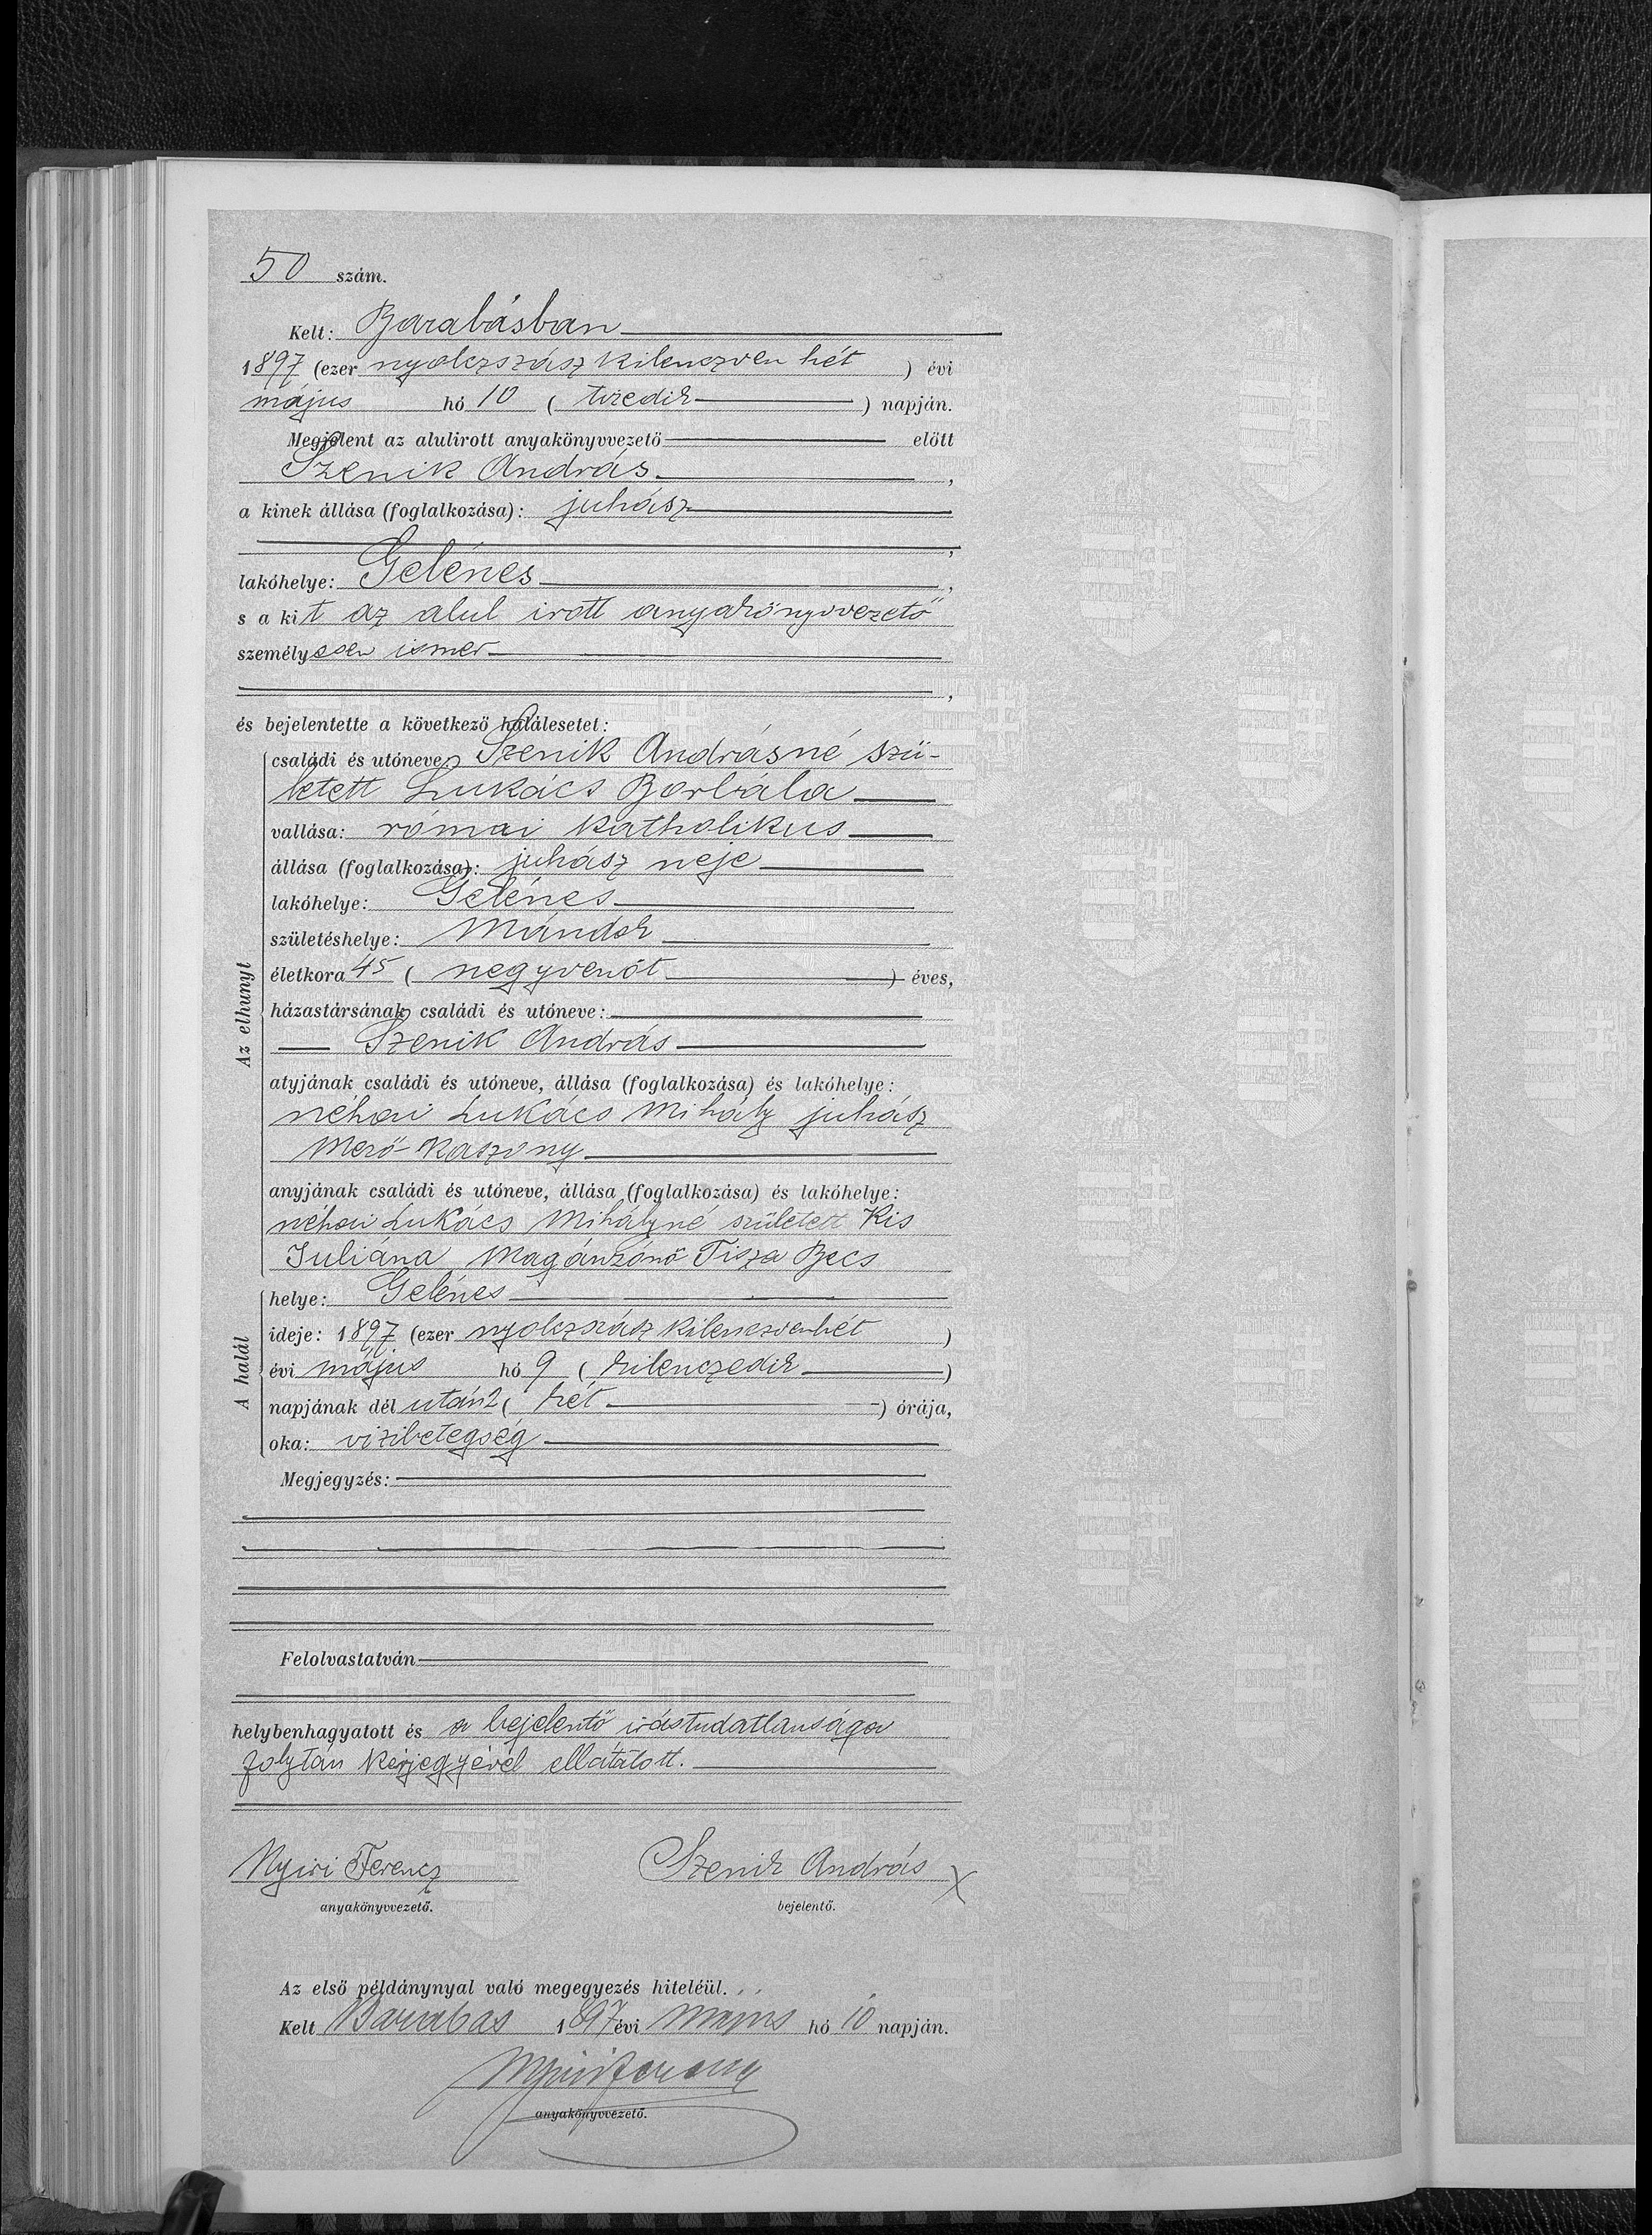 50 szám.
Kelt: Barabásban
1897 (ezer nyolczszász kilenczven hét ) évi
május hó 10 ( tizedik ) napján.
Megjelent az alulirott anyakönyvvezető előtt
Szenik András ,
a kinek állása (foglalkozása): juhász
,
lakóhelye: Gelénes ,
s a kit az alul irott anyakönyvvezető
személyesen ismer
,
és bejelentette a következő halálesetet:
Az elhunyt
családi és utóneve: Szenik Andrásné szü-
letett Lukács Borbála
vallása: római katholikus
állása (foglalkozása): juhász neje
lakóhelye: Gelénes
születéshelye: Mándok
életkora 45 ( negyvenöt ) éves,
házastársának családi és utóneve:
Szenik András
atyjának családi és utóneve, állása (foglalkozása) és lakóhelye:
néhai Lukács Mihály juhász
Mező-Kaszony
anyjának családi és utóneve, állása (foglalkozása) és lakóhelye:
néhai Lukács Mihályné született Kis
Juliána Magánzónő Tisza Becs
A halál
helye: Gelénes
ideje: 1897 (ezer nyolczszász kilenczvenhét )
évi május hó 9 ( kilenczedik )
napjának dél után 2 ( két ) órája,
oka: vizibetegség
Megjegyzés:
Felolvastatván
helybenhagyatott és a bejelentő irástudatlansága
folytán kézjegyével ellátatott.
Nyiri Ferencz Szenik András X
anyakönyvvezető. bejelentő.
Az első példánynyal való megegyezés hiteléül.
Kelt Barabás 1897 évi május hó 10 napján.
Nyiri Ferencz
anyakönyvvezető.